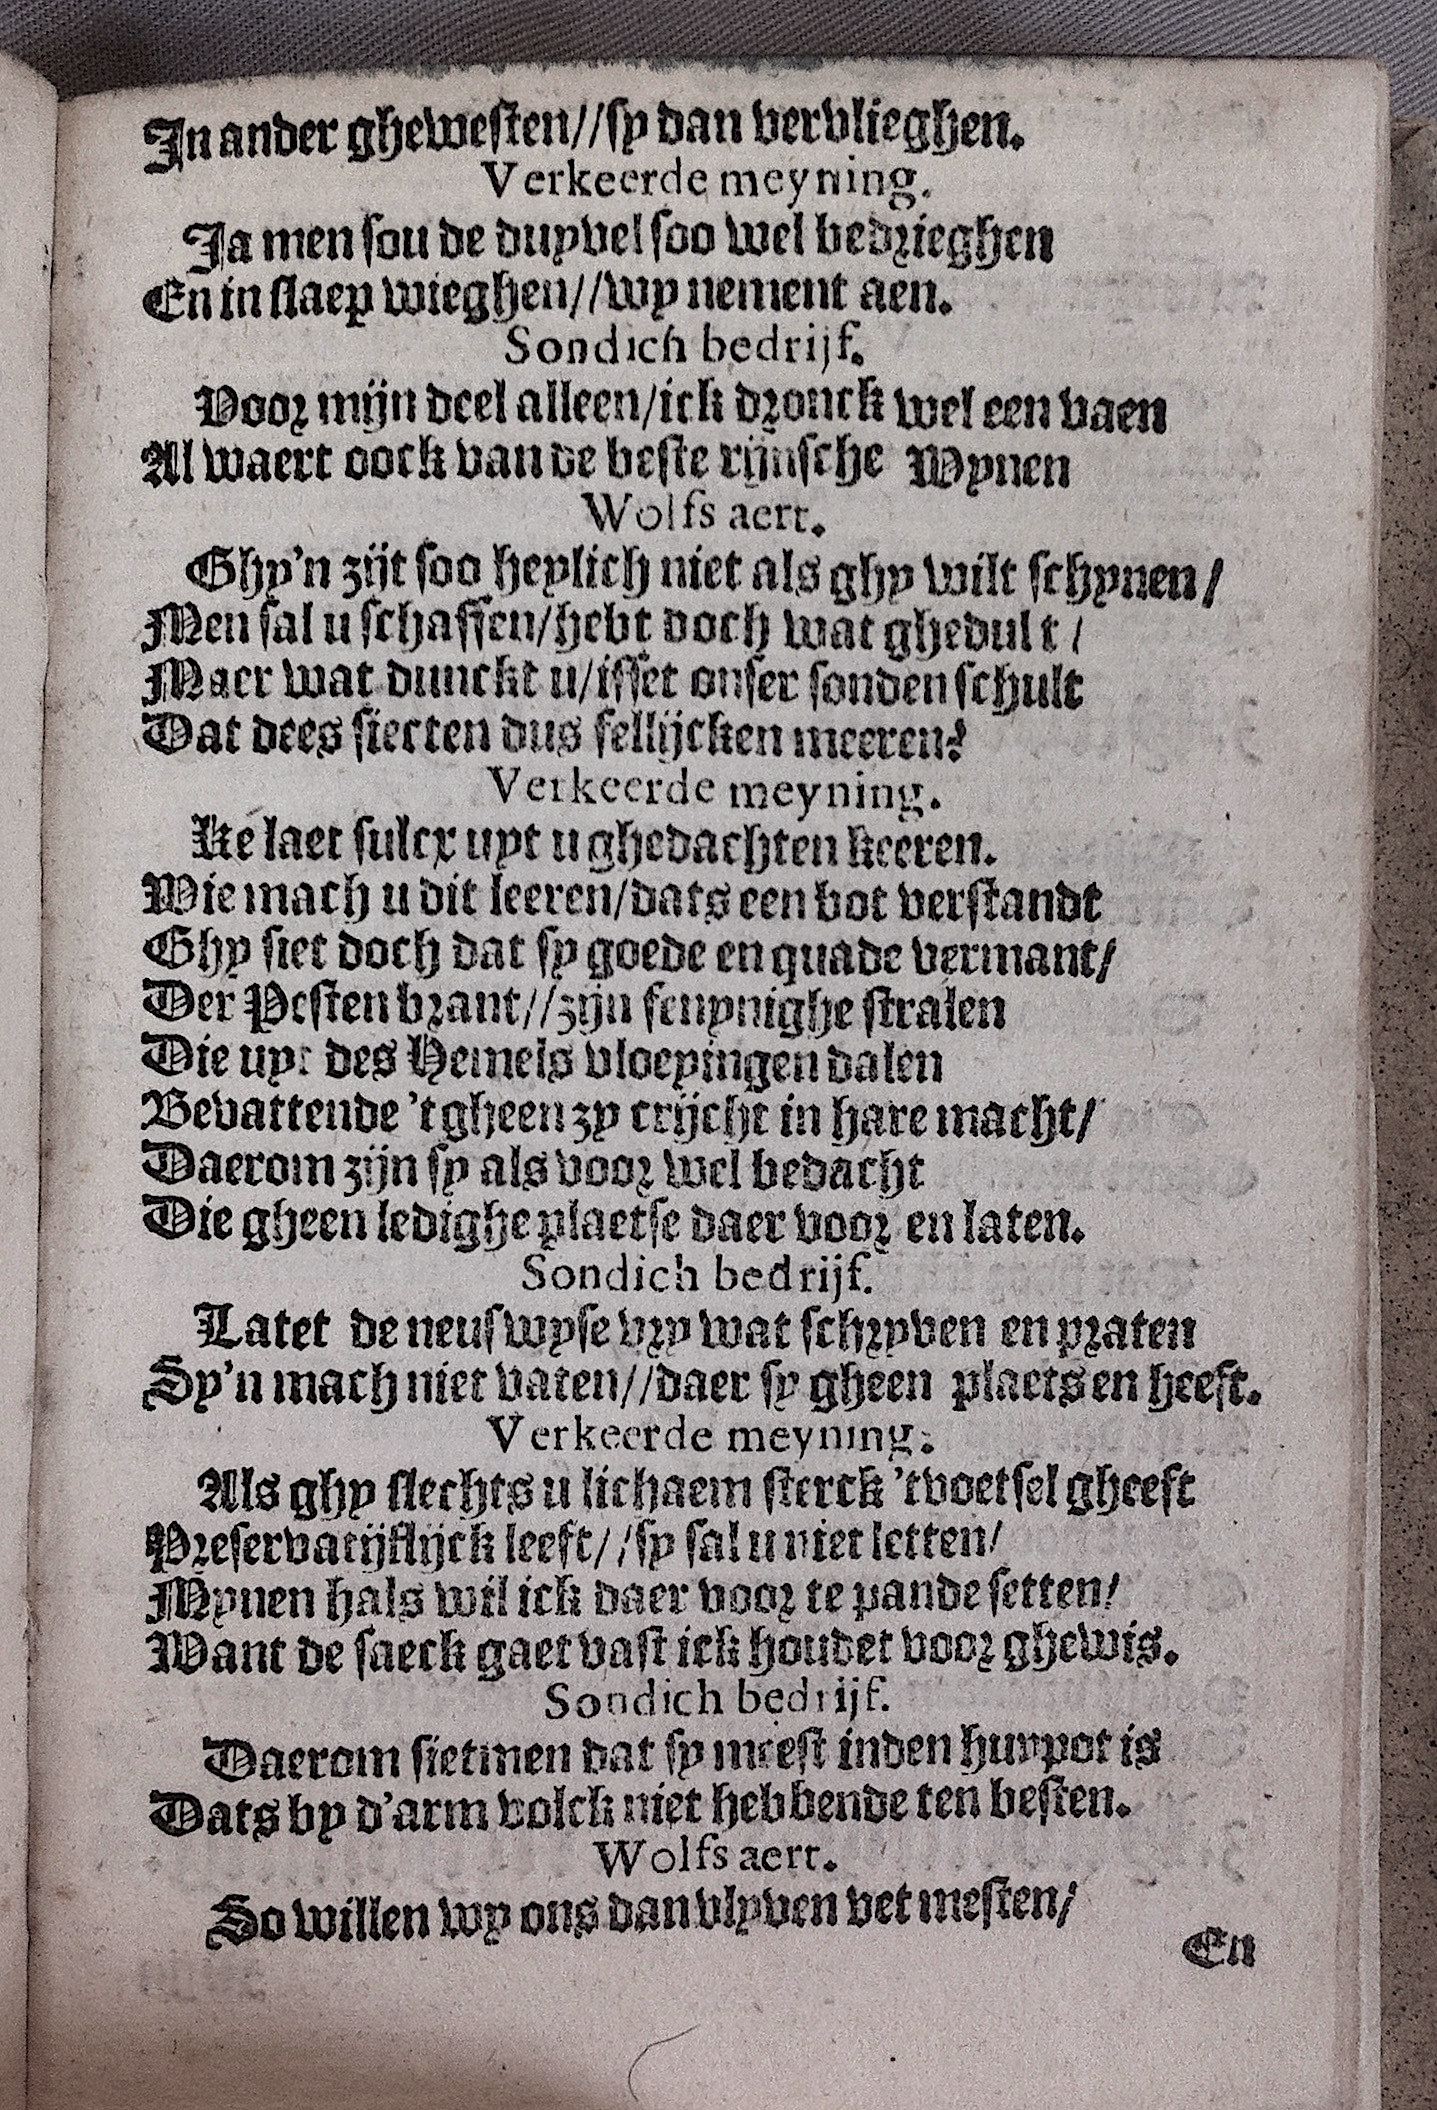 In ander ghewesten//sy dan vervlieghen.
Verkeerde meyning.
Ja men sou de duyvel soo wel bedrieghen
En in slaep wieghen//wy nement aen.
Sondich bedrijf.
Voor mijn deel alleen/ick dronck wel een vaen
Al waert oock van de beste rijnsche Wynen
Wolfs aert.
Ghy'n zijt soo heylich niet als ghy wilt schynen/
Men sal u schaffen/hebt doch wat ghedult/
Maer wat dunckt u/isset onser sonden schult
Dat dees siecten dus fellijcken meeren?
Verkeerde meyning.
Ke laet sulcx uyt u ghedachten keeren.
Wie mach u dit leeren/dats een bot verstandt
Ghy siet doch dat sy goede en quade vermant/
Der Pesten brant//zijn fenynighe stralen
Die uyt des Hemels vloeyingen dalen
Bevattende 't gheen zy crijcht in hare macht/
Daerom zijn sy als voor wel bedacht
Die gheen ledighe plaetse daer voor en laten.
Sondich bedrijf.
Latet de neuswyse vry wat schryven en praten
Sy'n mach niet vaten//daer sy gheen plaets en heeft.
Verkeerde meyning.
Als ghy slechts u lichaem sterck 'tvoetsel gheeft
Preservatijflijck leeft//sy sal u niet letten/
Mynen hals wil ick daer voor te pande setten/
Want de saeck gaet vast ick houdet voor ghewis.
Sondich bedrijf.
Daerom sietmen dat sy meest inden huypot is
Dats by d'arm volck niet hebbende ten besten.
Wolfs aert.
So willen wy ons dan vlyven vet mesten/
En